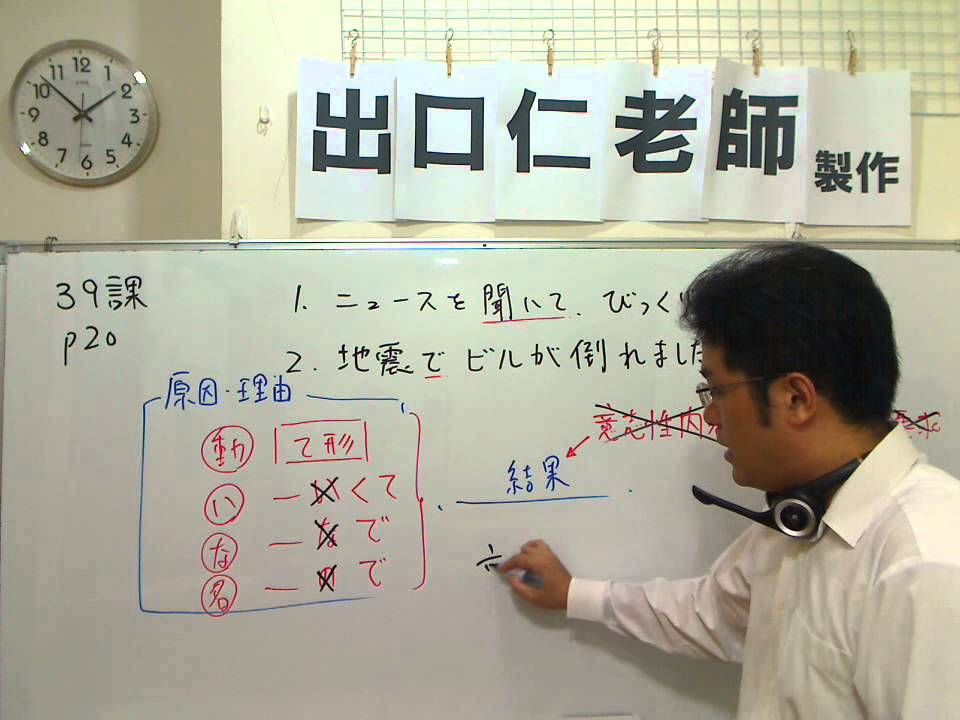 出口仁老師
製作
12 1 2 3 4 5 6 7 8 9 10 11
39課
p20
1. ニュースを聞いて、びっく
2. 地震でビルが倒れました
原因・理由
動 て形
い ―いくて
な ―なで
名 ―ので
意志性内
結果